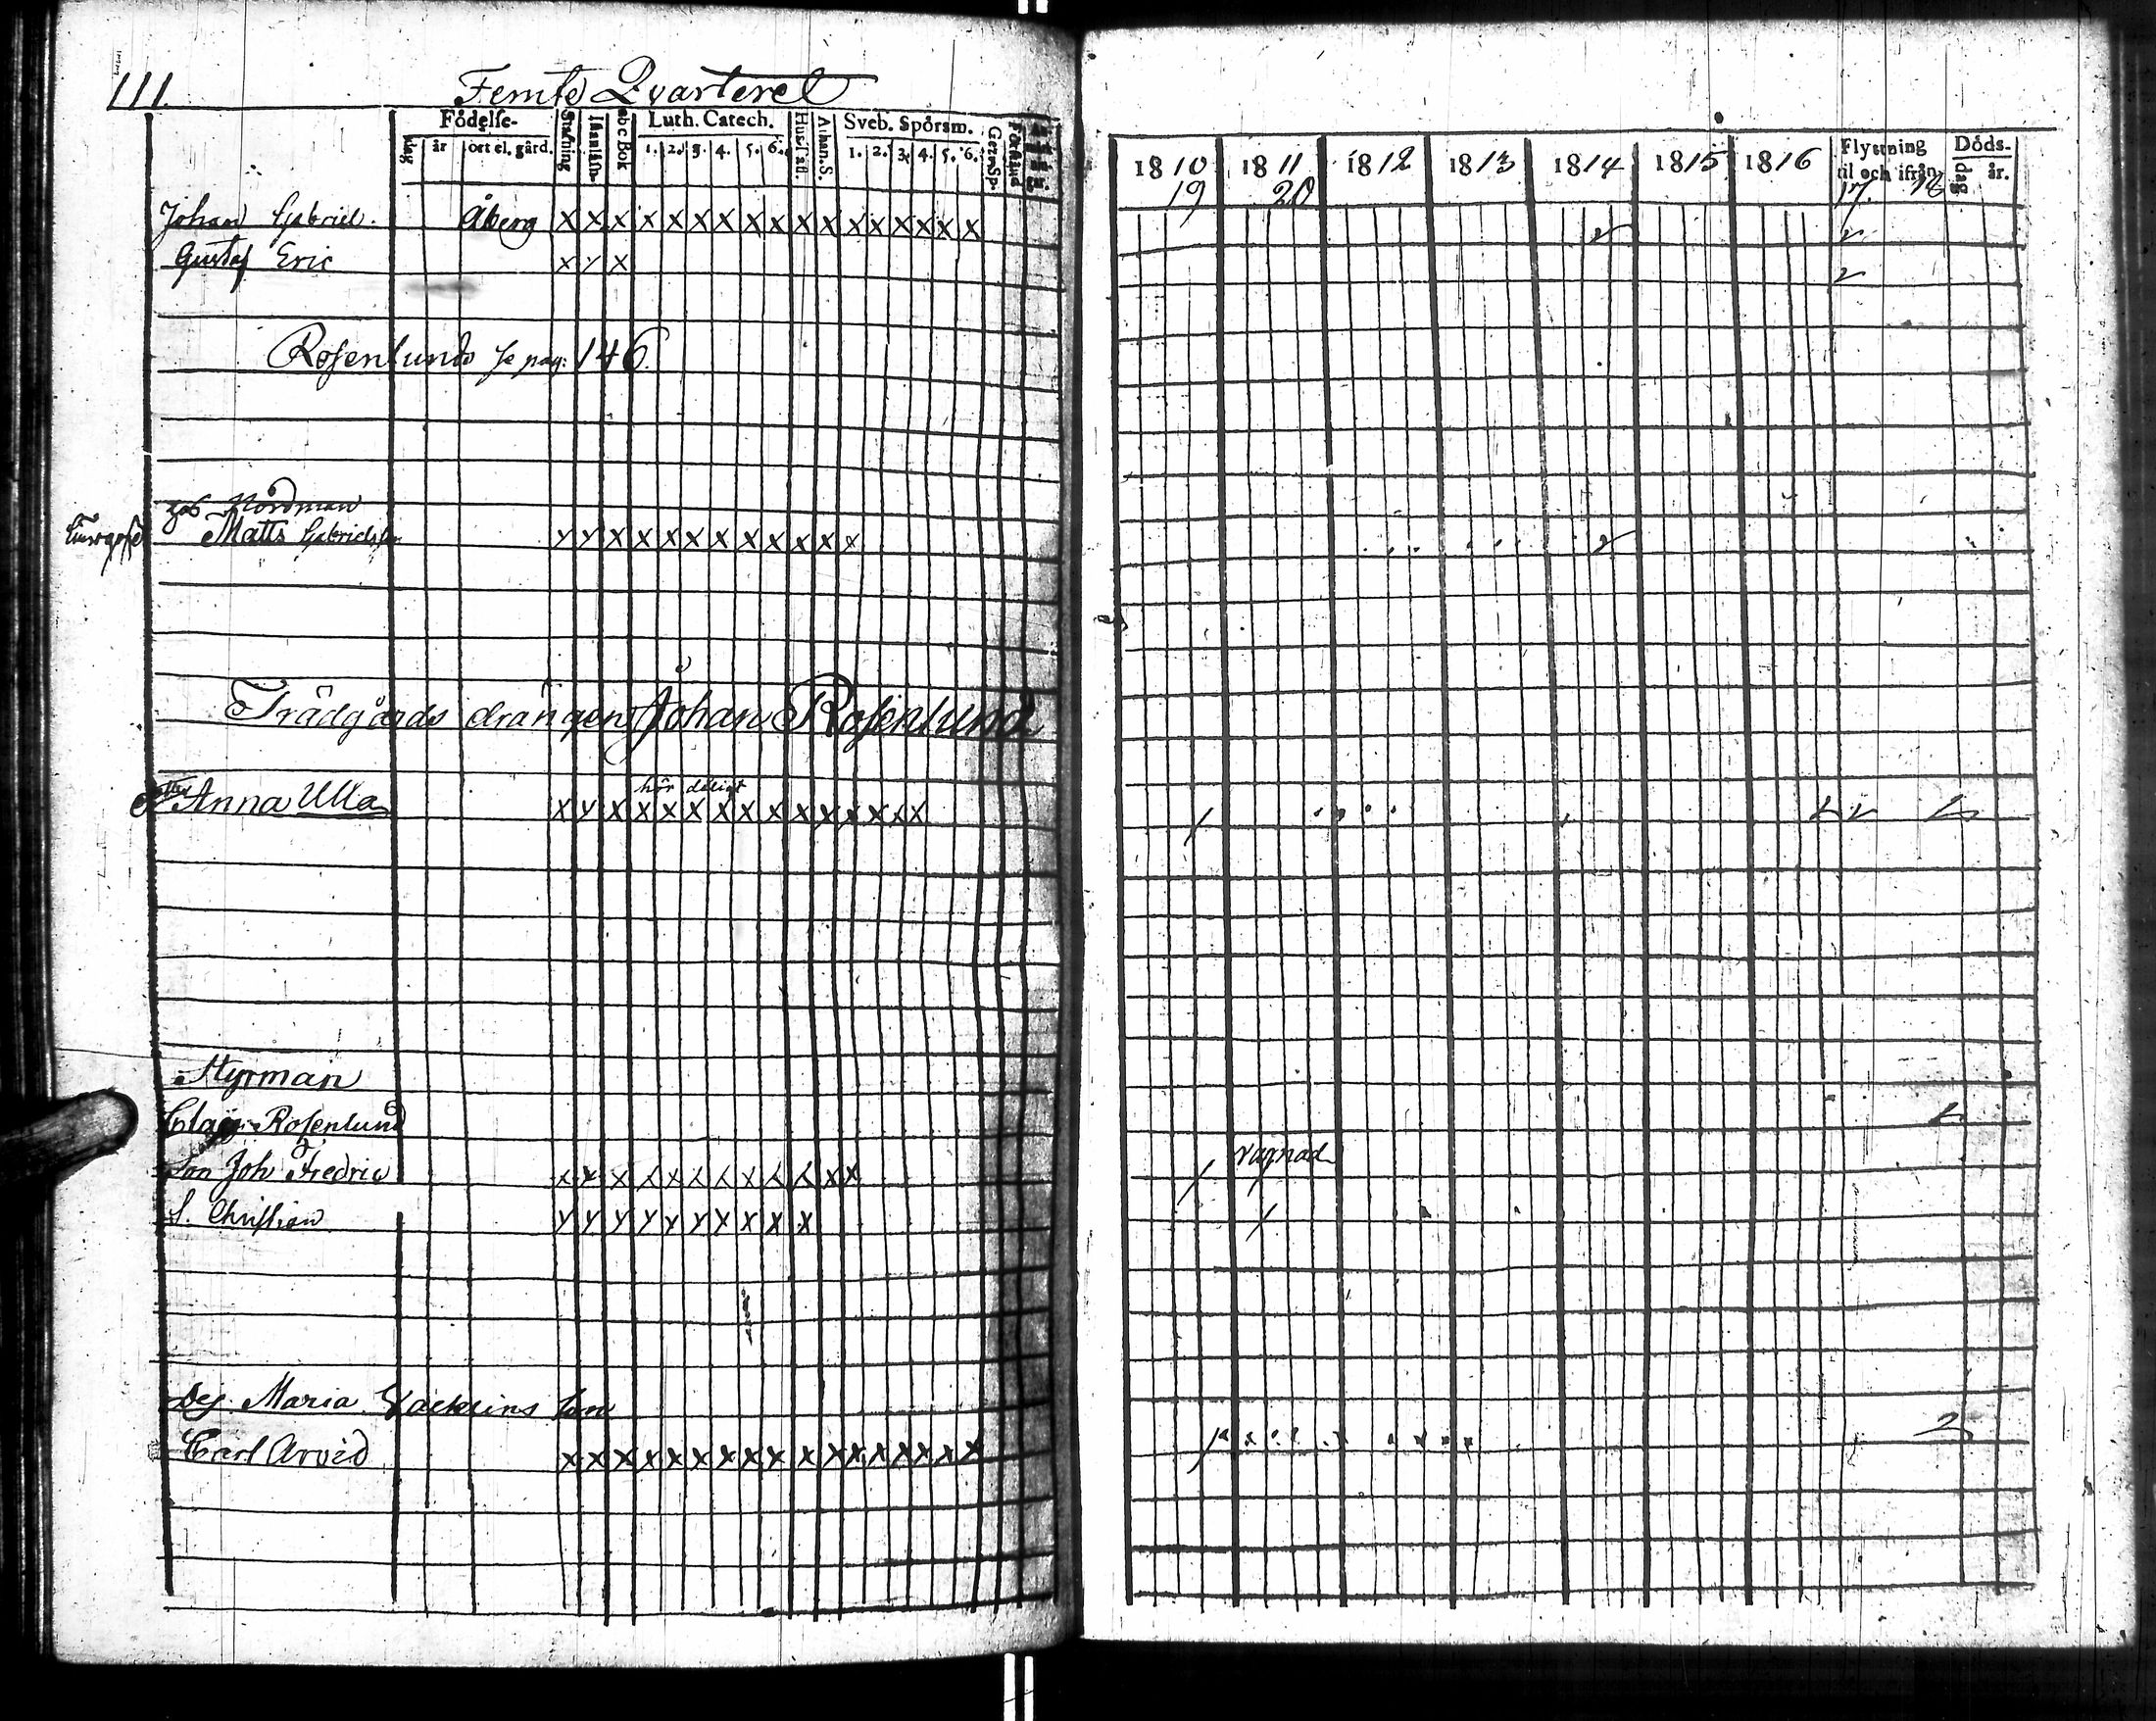 111.
Femte Qvarteret
Födelse-
dag
år
ort el. gård.
Stafning
abcBok
Luth. Catech.
1. 2. 3. 4. 5. 6.
Athan.S.
Sveb. Spörsm.
1. 2. 3. 4. 5. 6.
Förstånd
Johan Gabriel. Åberg x x x x x x x x x x x x x x x x x
Gustaf Eric x x x
Rosenlunds se pag: 146.
Nordman
Matts Gabrielss. x x x x x x x x x x x x
Trädgårds drängen Johan Rosenlund
hör dåligt
Anna Ulla x x x x x x x x x x x x x x x
Styrman
Rosenlund
Son Joh Fredric x x x x x x x x x x x x
S. Christian x x x x x x x x x x
Maria son
Carl Arvid x x x x x x x x x x x x x x x x x
1810 1811 1812 1813 1814 1815 1816
Flyttning
til och ifrån
Döds-
dag
år.
19 20 17. 18